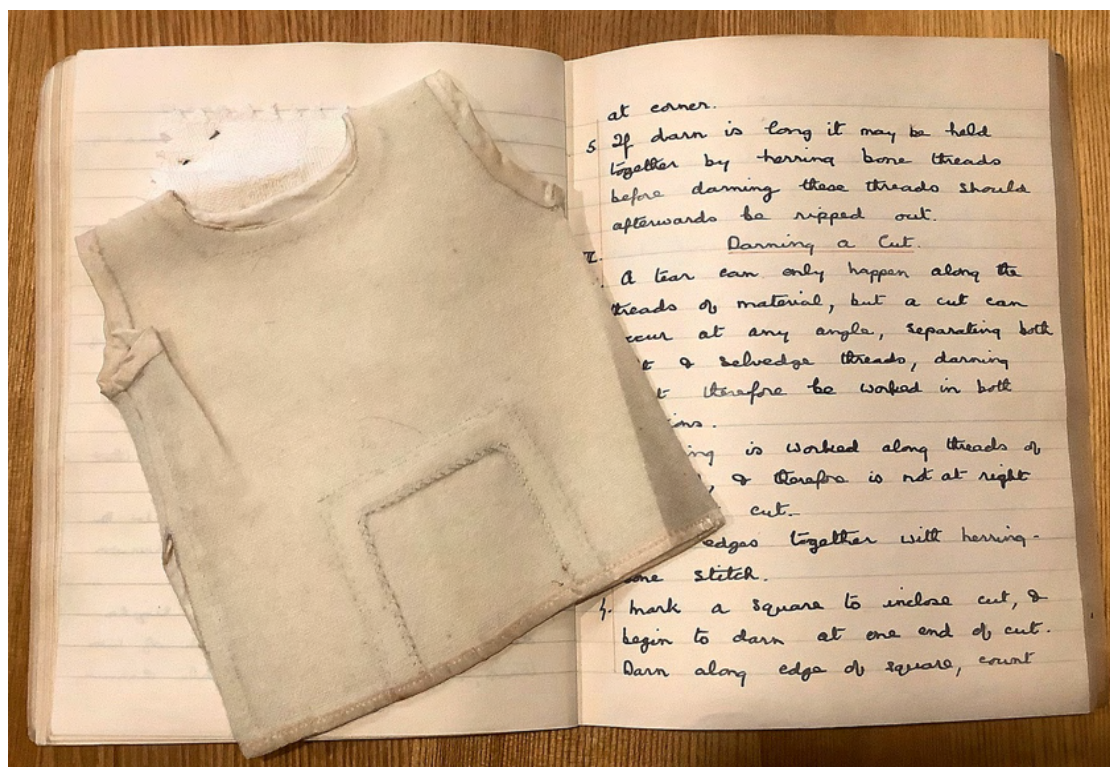 at corner.
5. If darn is long it may be held
together by herring bone threads
before darning these threads should
afterwards be ripped out.
Darning a Cut.
II.
A tear can only happen along the
threads of material, but a cut can
occur at any angle, separating both
& selvedge threads, darning
therefore be worked in both
is worked along threads of
, & therefore is not at right
cut.
edges together with herring-
bone stitch.
4. Mark a square to inclose cut, &
begin to darn at one end of cut.
Darn along edge of square, count